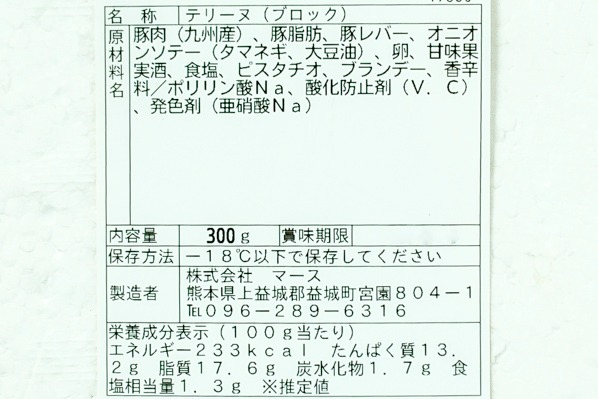 名 称 テリーヌ（ブロック）
原材料名 豚肉（九州産）、豚脂肪、豚レバー、オニオ
ンソテー（タマネギ、大豆油）、卵、甘味果
実酒、食塩、ピスタチオ、ブランデー、香辛
料／ポリリン酸Ｎａ、酸化防止剤（Ｖ．Ｃ）
、発色剤（亜硝酸Ｎａ）
内容量 300ｇ 賞味期限
保存方法 －１８℃以下で保存してください
製造者 株式会社　マース
熊本県上益城郡益城町宮園８０４－１
℡０９６－２８９－６３１６
栄養成分表示（１００ｇ当たり）
エネルギー２３３ｋｃａｌ　たんぱく質１３．
２ｇ　脂質１７．６ｇ　炭水化物１．７ｇ　食
塩相当量１．３ｇ　※推定値